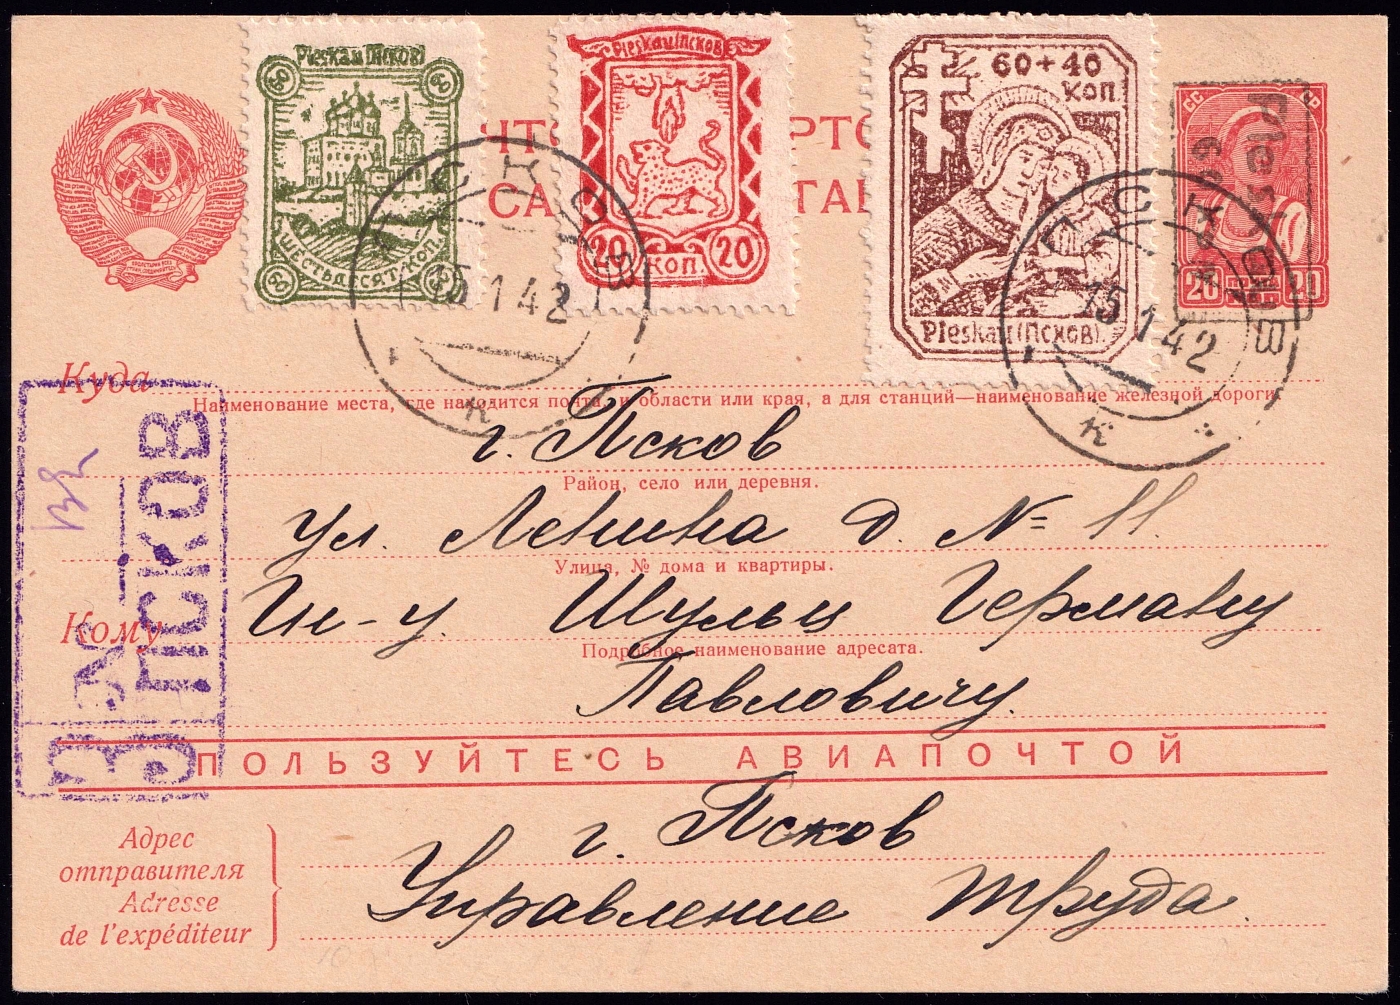 Pleskau (Псков)
60 60
ШЕСТЬДЕСЯТ КОП.
60 60
Pleskau (Псков)
20 КОП. 20
60 + 40
КОП
Pleskau (Псков).
СС СР
20 20
60 коп
ПСКОВ
15 1 42
К
ПСКОВ
15 1 42
К
Куда
Наименование места, где находится почта, и области или края, а для станций—наименование железной дороги.
г. Псков
Район, село или деревня.
ул. Ленина д. № 11.
Улица, № дома и квартиры.
Кому
Ин-у. Шульц Герману
Подробное наименование адресата.
Павловичу.
З
ПСКОВ
ПОЛЬЗУЙТЕСЬ АВИАПОЧТОЙ
Адрес
отправителя
Adresse
de l'expéditeur
г. Псков
Управление труда.